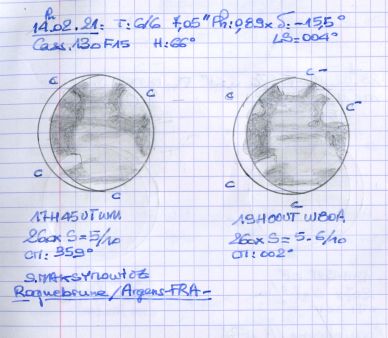 14.02.21: T: 6/6 7,05" Ph: 0,89x δ: -15,5°
Cass. 130 F15 H: 66° LS=004°
C C C C
C C- C- C C
17H45UT W11
260x S=5/10
CM: 359°
19H00UT W80A
260x S=5-6/10
CM: 002°
S. MAKSYMOWICZ
Roquebrune/Argens-FRA-